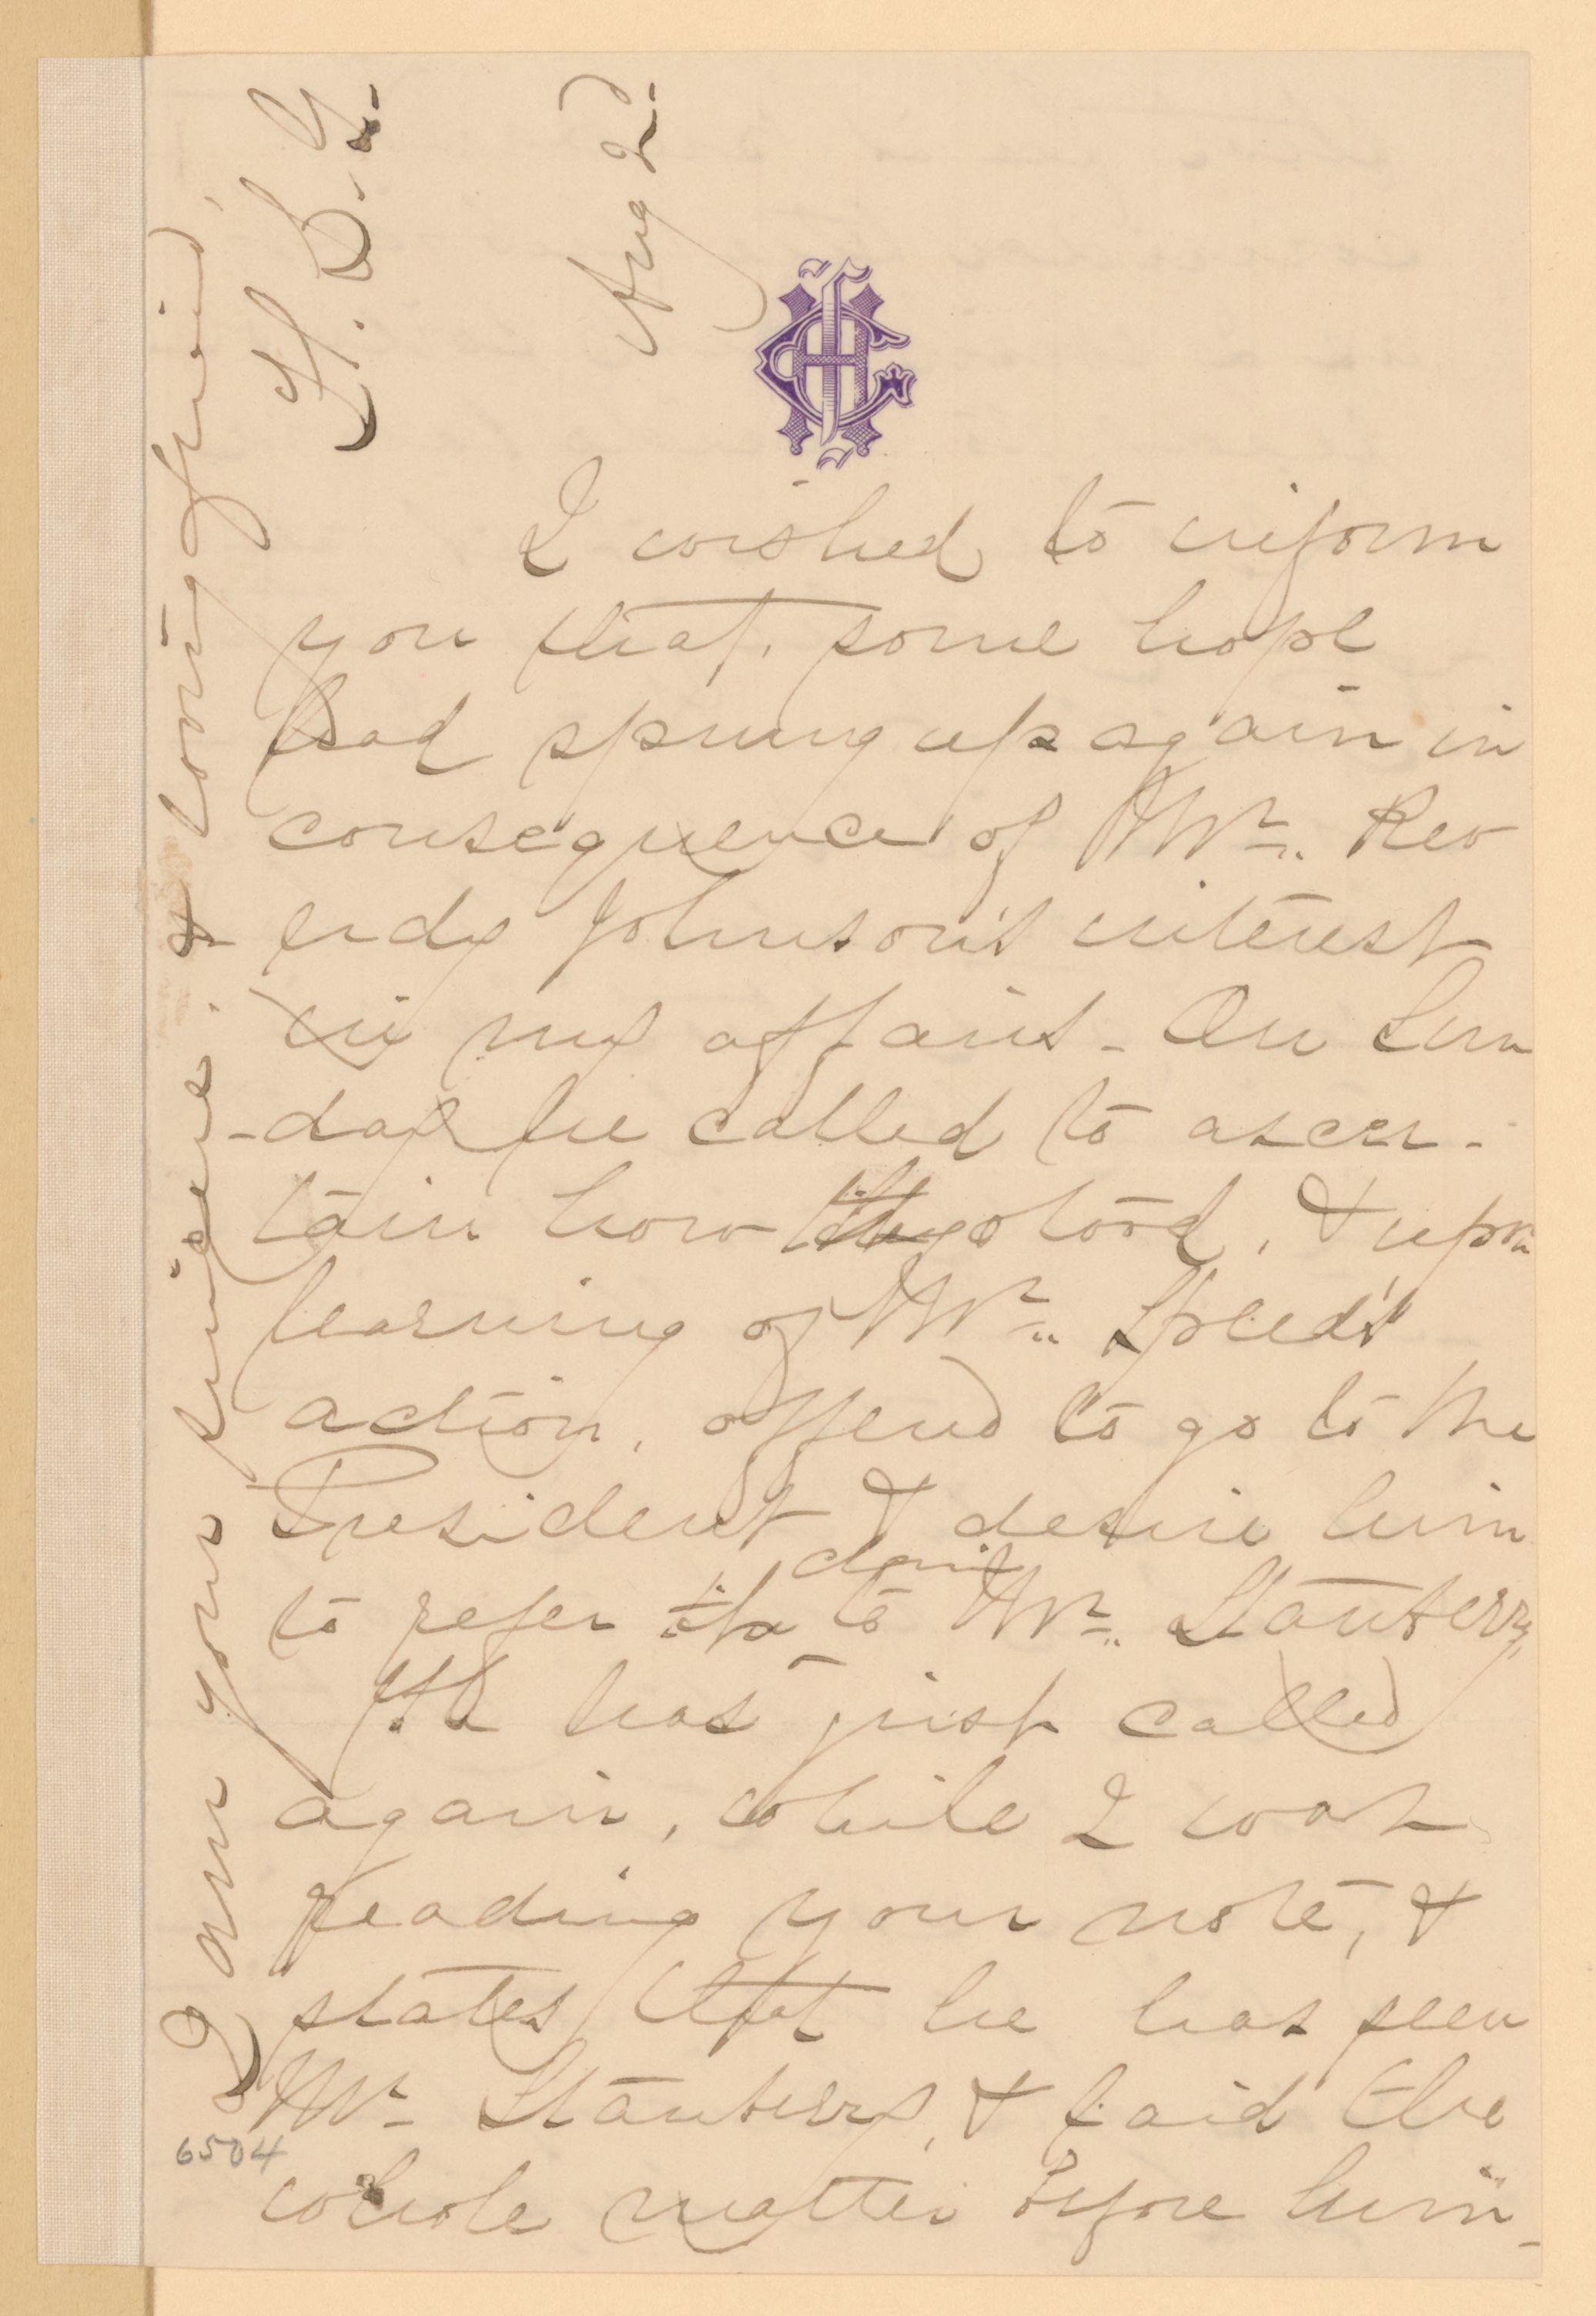 Aug 2d.
I wished to inform
you that, some hope
had sprung up again in
consequence of Mr. Rev
erdy Johnson's interest
in my affairs - On Sun
-day he called to ascer-
tain how they stood, & upon
learning of Mr. Speed's
action, offered to go to the
President & desire him
to refer the claim to Mr. Stanberry,
He has just called
again, while I was
reading your note, &
states that he has seen
Mr. Stanberry, & laid the
whole matter before him -
I am your sincere. & loving friend,
6504